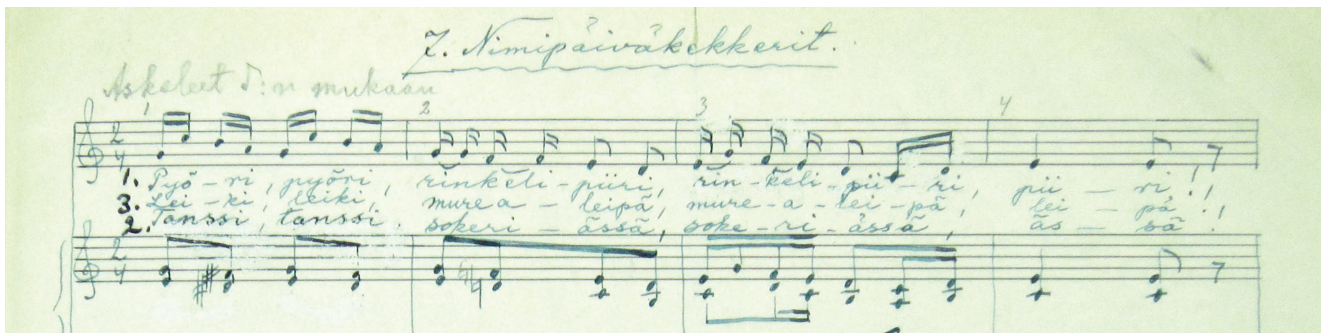 7. Nimipäiväkekkerit.
Askeleet ♪:n mukaan
1 2 3 4
2
4
1. Pyö-ri, pyöri, rinkeli-piiri, rin-keli-pii-ri, pii-ri!
3. Lei-ki, leiki, murea-leipä, mure-a-lei-pä, lei-pä!
2. Tanssi, tanssi. sokeri-ässä, soke-ri-ässä, äs-sä!
2
4